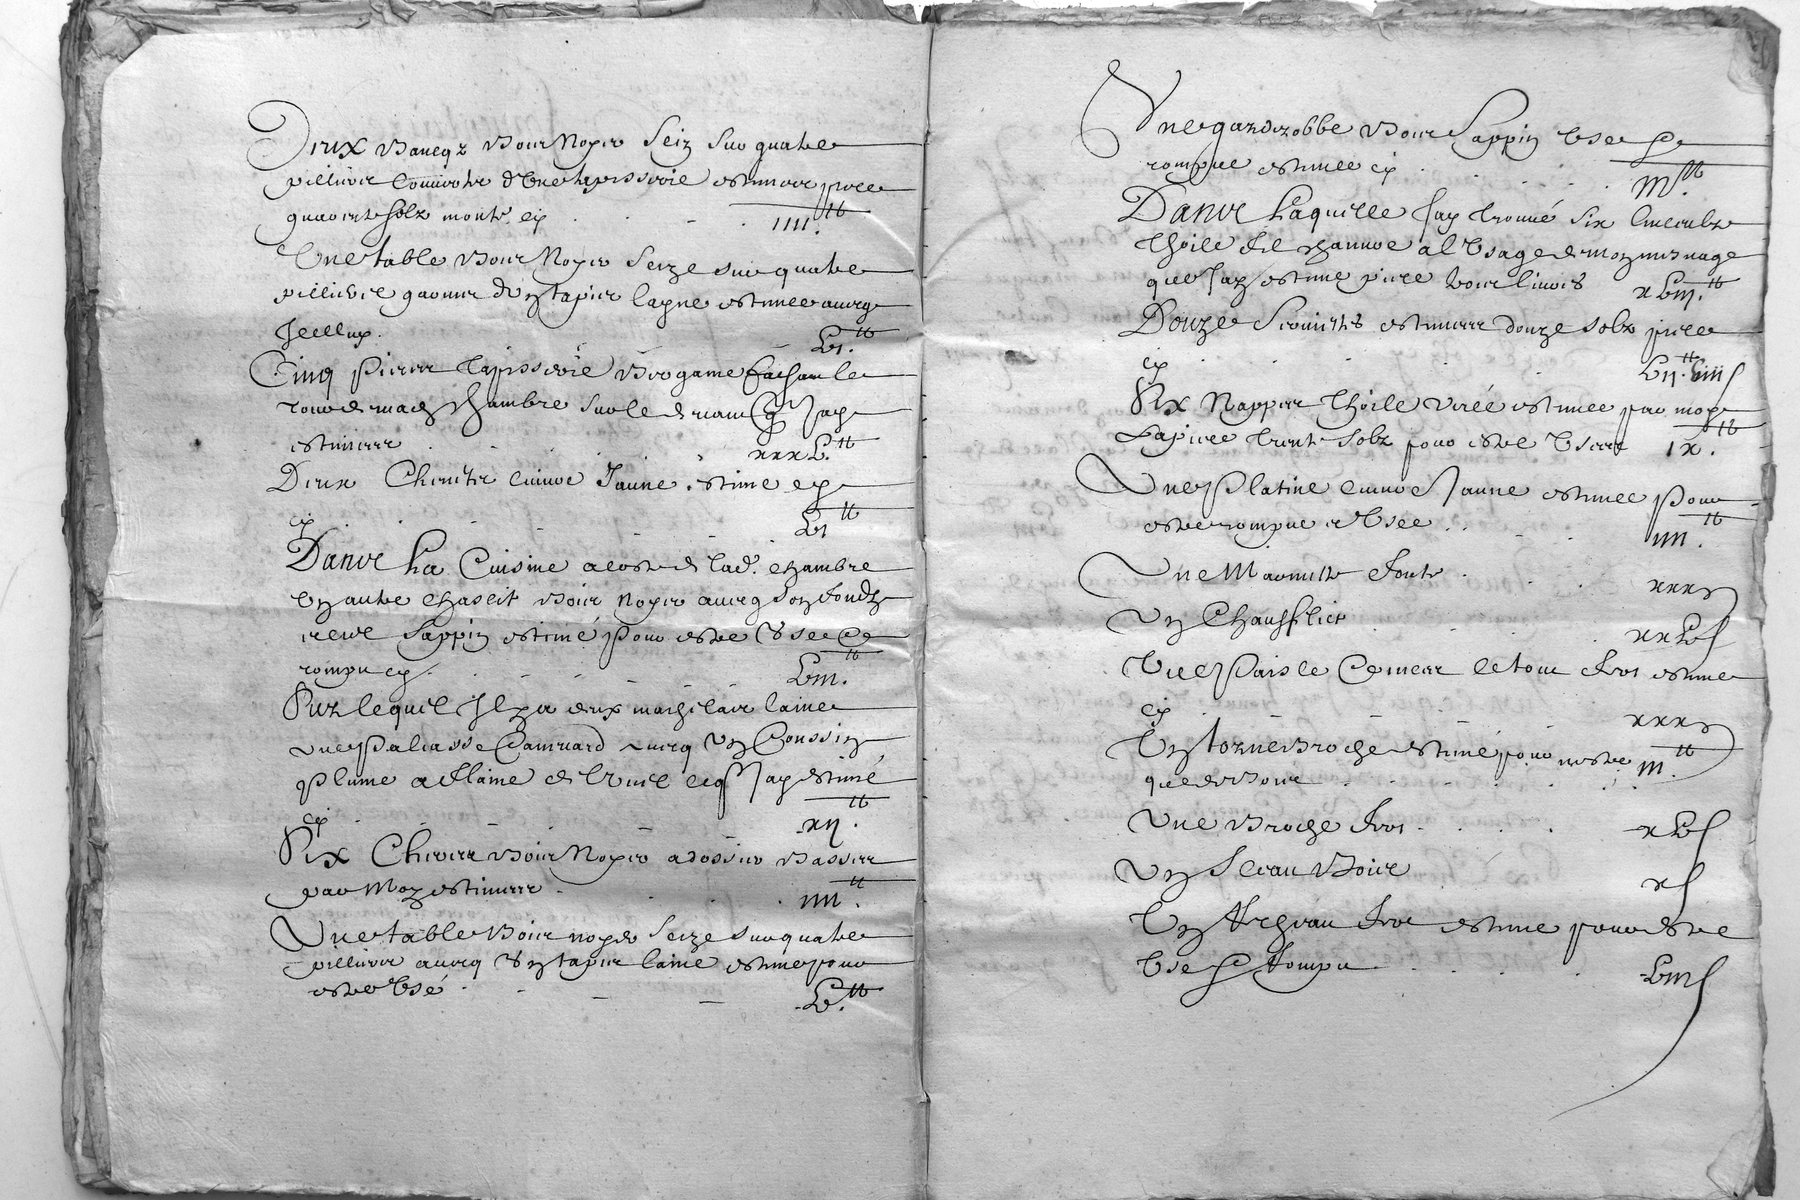 Deux bancqz bois Noyer Seiz sur quatre
pilliers couverte d'Une tapisserie estimez piece
quarente solz monte cy . . . . iiii.tt
Une table bois Noyer Seize sur quatre
pilliers garnie d'un tapis layne estimee avecq
Jcelluy. Vi.tt
Cinq pieces tapisserie bergame faisant le
tour de mad. chambre
estimees xxxV.tt
Deux Chenetz cuivre Jaune estimé
cy Vi tt
Dans La Cuisine a costé de lad. chambre
Un autre chaslit bois noyer avecq son fondz
sappin estimé pour estre Usee Et
rompu cy. Viii.tt
Sur lequel Jl y a deux mathelas laine
une paliasse Cannard avecq Un Coussin
plume a flaine de Jay estimé
cy xii.tt
Six Chezes bois Noyer a dossier basses
par Moy estimees . iiii.tt
Une table bois noyer Seize sur quatre
pilliers avecq Un tapis laine estimé pour
estre Usé . V.tt
Une garderobbe bois Sappin Usee Et
rompue estimee cy . . . . iii.tt
Dans Laquelle Jay trouvé six linceulz
thoile de chanve a l'Usage de mon mesnage
que Jay estimé piece trois livres xViii.tt
Douze Serviettes estimees douze solz piece
cy Vii.tt iiiis
Six Nappes thoile estimee par moy
La piece trente solz pour estre Usees ix.tt
Une Platine cuivre Jaune estimee pour
estre rompue et Usee . . iiii.tt
Une Marmitte fonte . xxxs
Un Chauffelict xxVs
Une Paisle Cemeau le tout fer estimé
cy xxxs
Un tornebroche estimé pour n'estre
que de bois iii.tt
Une broche fer . . . . xVs
Un Seau bois xs
Un Rechau fer estimé pour estre
Use Et Rompu . . . . Viiis